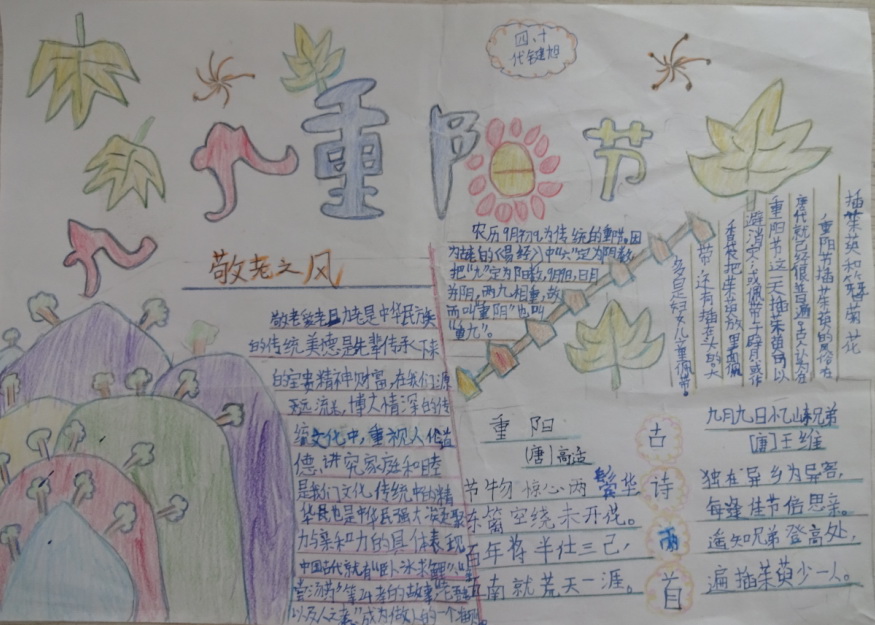 四、十
九九重阳节
敬老之风
敬老爱老
是中华民族
的传统美德是先辈传承下来
的宝贵精神财富,在我们源
远流长,博大情深的传
统文化中,重视人伦道
德、讲究家庭和睦
是我们文化传统中的精
力与亲和力的具体表现
中国古代就有"卧冰求鲤"、
成为做人的一个
农历9月初九为传统的重阳
为古老的《易经》中"六"定为阴数
把"九"定为阳数,9月9日,日月
并阳,两九相重,故
而叫重阳"也叫
"重九"。
插茱萸和簪菊花
重阳节插茱萸的风俗在
唐代就已经很普遍。古人认为在
重阳节这一天插茱萸可以
避难消灾;或佩带于臂,或作
香袋把茱萸放里面佩
带,还有插在头的大
多是妇女儿童佩带。
重阳
[唐]高适
节物惊心两鬓华
东篱空绕未开花。
百年将半仕三已,
五南就荒天一涯。
古
诗
两
首
九月九日忆山东兄弟
[唐]王维
独在异乡为异客,
每逢佳节倍思亲。
遥知兄弟登高处,
遍插茱萸少一人。